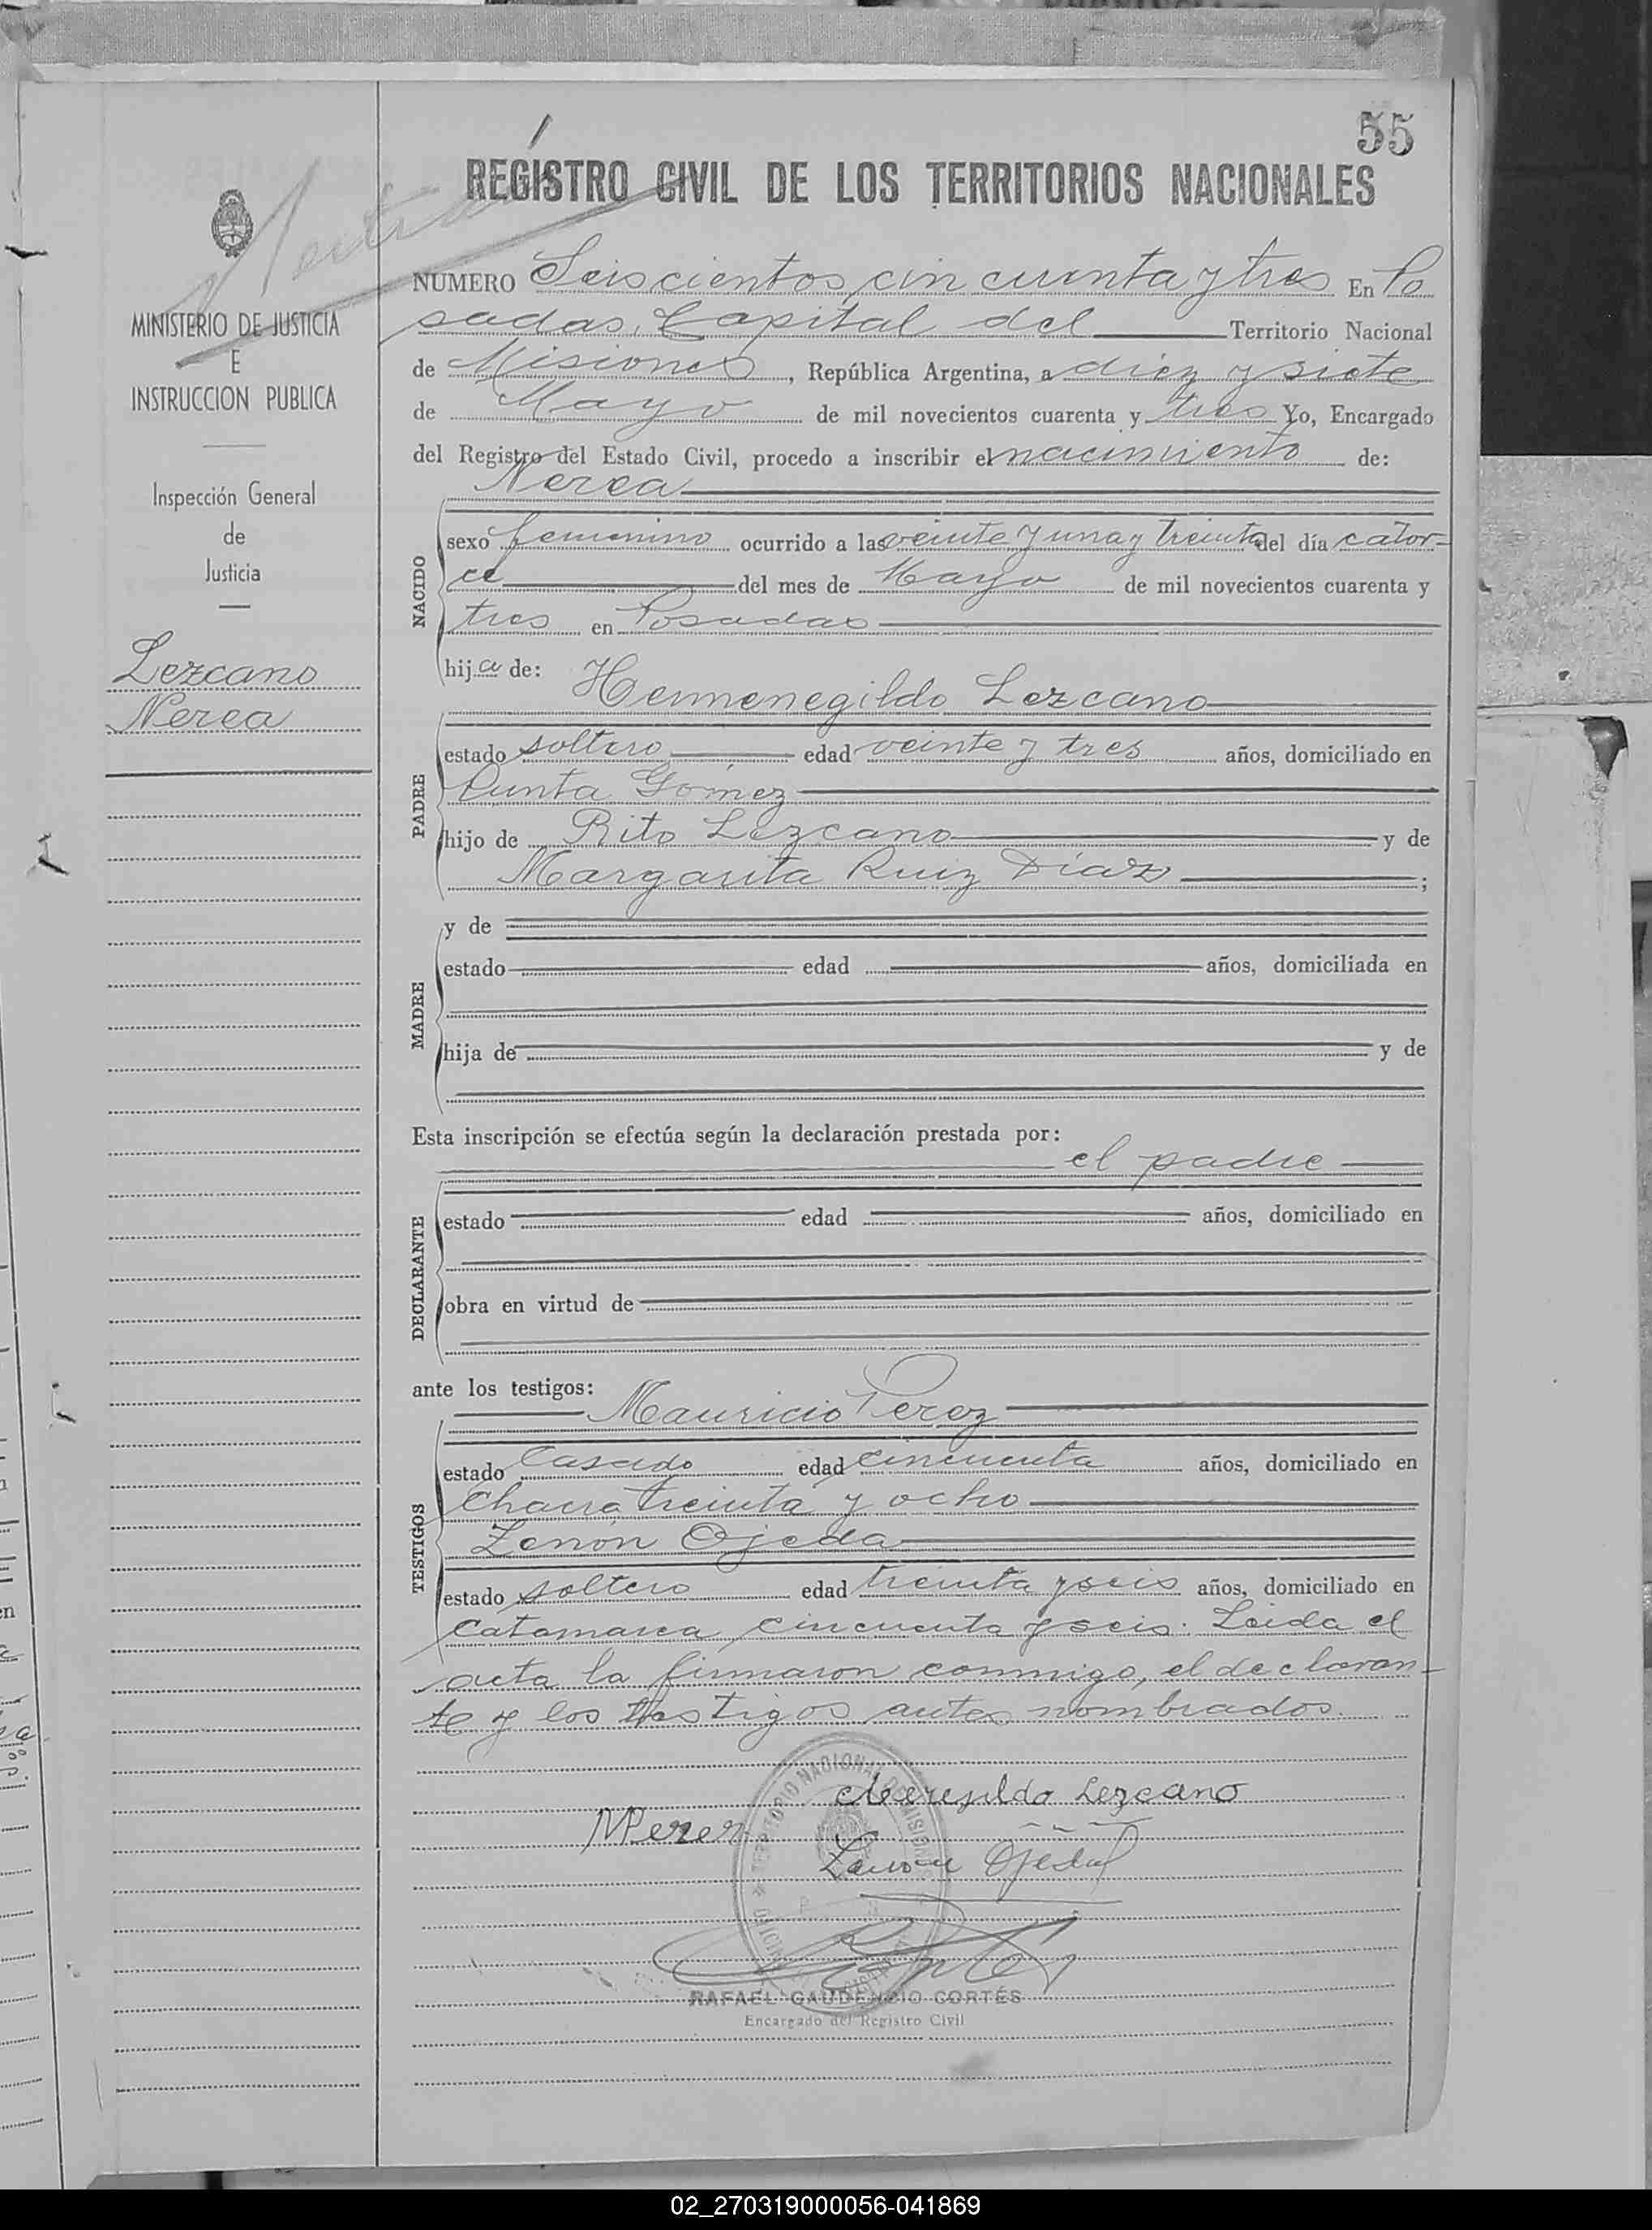 55
REGISTRO CIVIL DE LOS TERRITORIOS NACIONALES
MINISTERIO DE JUSTICIA
E
INSTRUCCION PUBLICA
Inspección General
de
Justicia
Lezcano
Nerea
NUMERO Seiscientos cincuenta y tres En Po
sadas, Capital del Territorio Nacional
de Misiones, República Argentina, a diez y siete
de Mayo de mil novecientos cuarenta y tres Yo, Encargado
del Registro del Estado Civil, procedo a inscribir el nacimiento de:
Nerea
NACIDO
sexo femenino ocurrido a las veinte y una y treinta del día cator-
ce del mes de Mayo de mil novecientos cuarenta y
tres en Posadas
hija de:
Hermenegildo Lezcano
PADRE
estado soltero edad veinte y tres años, domiciliado en
Punta Gómez
hijo de Rito Lezcano y de
Margarita Ruiz Díaz;
MADRE
y de
estado edad años, domiciliada en
hija de y de
Esta inscripción se efectúa según la declaración prestada por:
el padre
DECLARANTE
estado edad años, domiciliado en
obra en virtud de
ante los testigos:
Mauricio Perez
TESTIGOS
estado Casado edad cincuenta años, domiciliado en
Chacra treinta y ocho
Zenón Ojeda
estado soltero edad treinta y seis años, domiciliado en
Catamarca cincuenta y seis. Leida el
acta la firmaron conmigo, el declaran-
te y los testigos antes nombrados.
TERRITORIO NACIONAL DE MISIONES
Lezcano
MPerez
Zenon Ojeda
RAFAEL GAUDENCIO CORTÉS
Encargado del Registro Civil
02_270319000056-041869